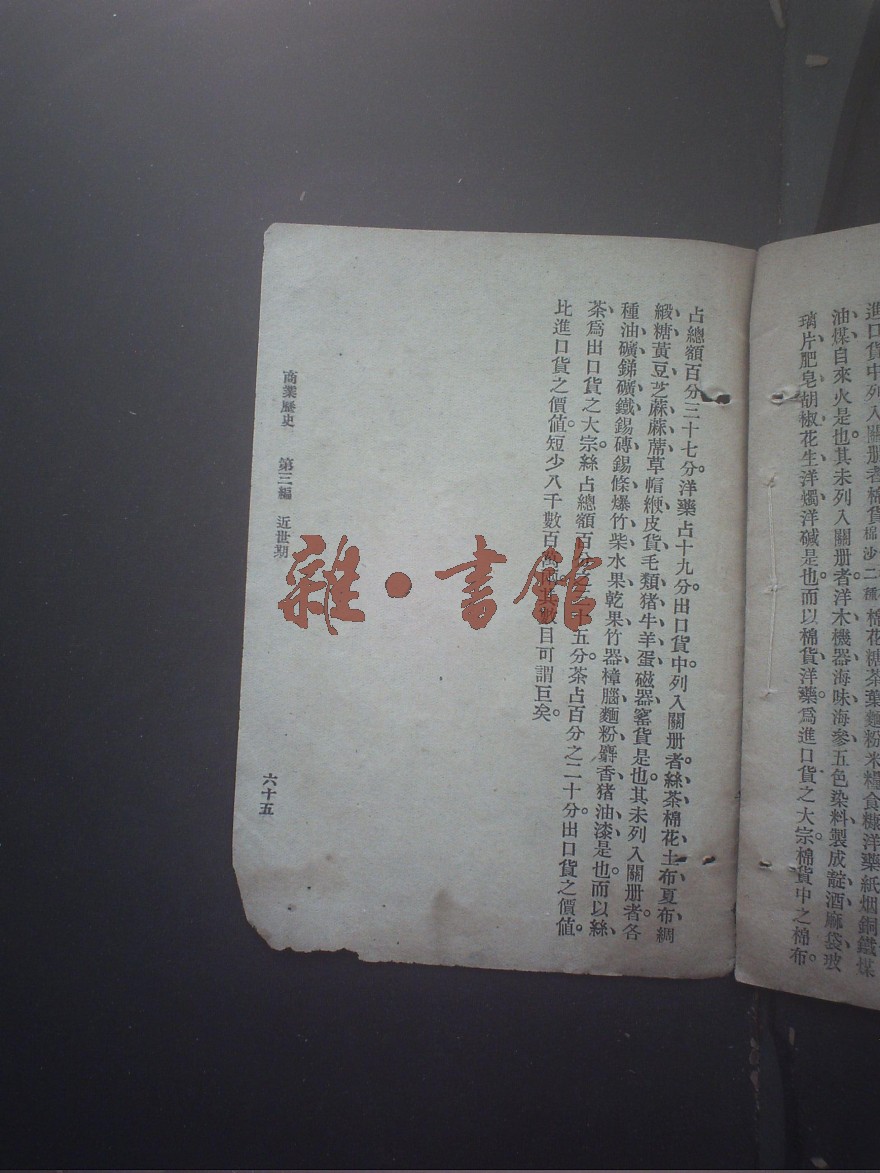 進口貨中列入關册者棉貨棉沙二種棉花糖茶葉麵粉米糧食糠洋藥紙烟銅鐵煤
油、煤自來火是也。其未列入關册者。洋木機器海味海參五色染料製成靛酒麻袋玻
璃片肥皂胡椒花生洋燭洋碱是也。而以棉貨洋藥。爲進口貨之大宗。棉貨中之棉布。
占總額百分三十七分。洋藥占十九分。出口貨中。列入關册者。絲、茶、棉花、土布、夏布、綢
緞、糖、黃豆、芝蔴、蔴、蓆、草帽緶、皮貨、毛類、猪、牛、羊、蛋、磁器、窰貨是也。其未列入關册者。各
種油、礦、銻礦、鐵、錫磚、錫條、爆竹、柴、水果、乾果、竹器、樟腦、麵粉、麝香、猪油、漆是也。而以絲
茶爲出口貨之大宗。絲占總額百分之三十五分。茶占百分之二十分。出口貨之價值。
比進口貨之價值。短少八千數百萬兩數目可謂巨矣。
商業歷史 第三編 近世期
六十五
雜·書館